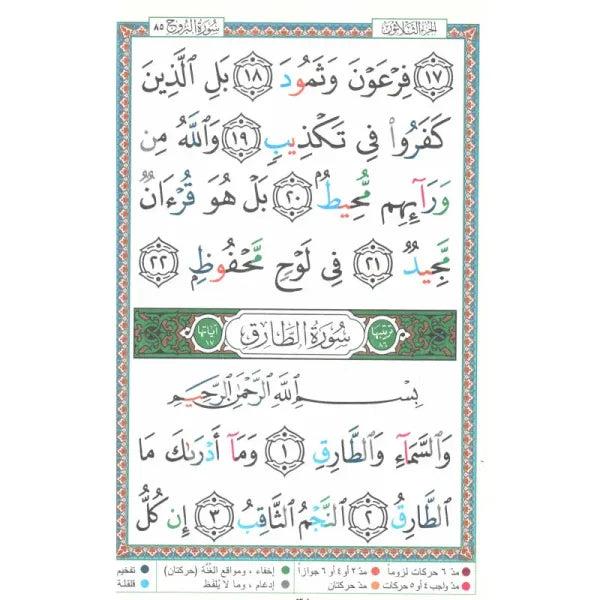 الجزء الثلاثون سورة البروج ٨٥
١٧ فِرْعَوْنَ وَثَمُودَ ١٨ بَلِ ٱلَّذِينَ
كَفَرُوا۟ فِى تَكْذِيبٍ ١٩ وَٱللَّهُ مِن
وَرَآئِهِم مُّحِيطٌۢ ٢٠ بَلْ هُوَ قُرْءَانٌ
مَّجِيدٌ ٢١ فِى لَوْحٍ مَّحْفُوظٍۭ ٢٢
ترتيبها ٨٦ سُورَةُ ٱلطَّارِقِ آياتها ١٧
بِسْمِ ٱللَّهِ ٱلرَّحْمَٰنِ ٱلرَّحِيمِ
وَٱلسَّمَآءِ وَٱلطَّارِقِ ١ وَمَآ أَدْرَىٰكَ مَا
ٱلطَّارِقُ ٢ ٱلنَّجْمُ ٱلثَّاقِبُ ٣ إِن كُلُّ
مدّ ٦ حركات لزوماً مدّ ٢ أو ٤ أو ٦ جوازاً إخفاء ، ومواقع الغُنَّة (حركتان) تفخيم
مدّ واجب ٤ أو ٥ حركات مدّ حركتان إدغام ، وما لا يُلفَظ قلقلة